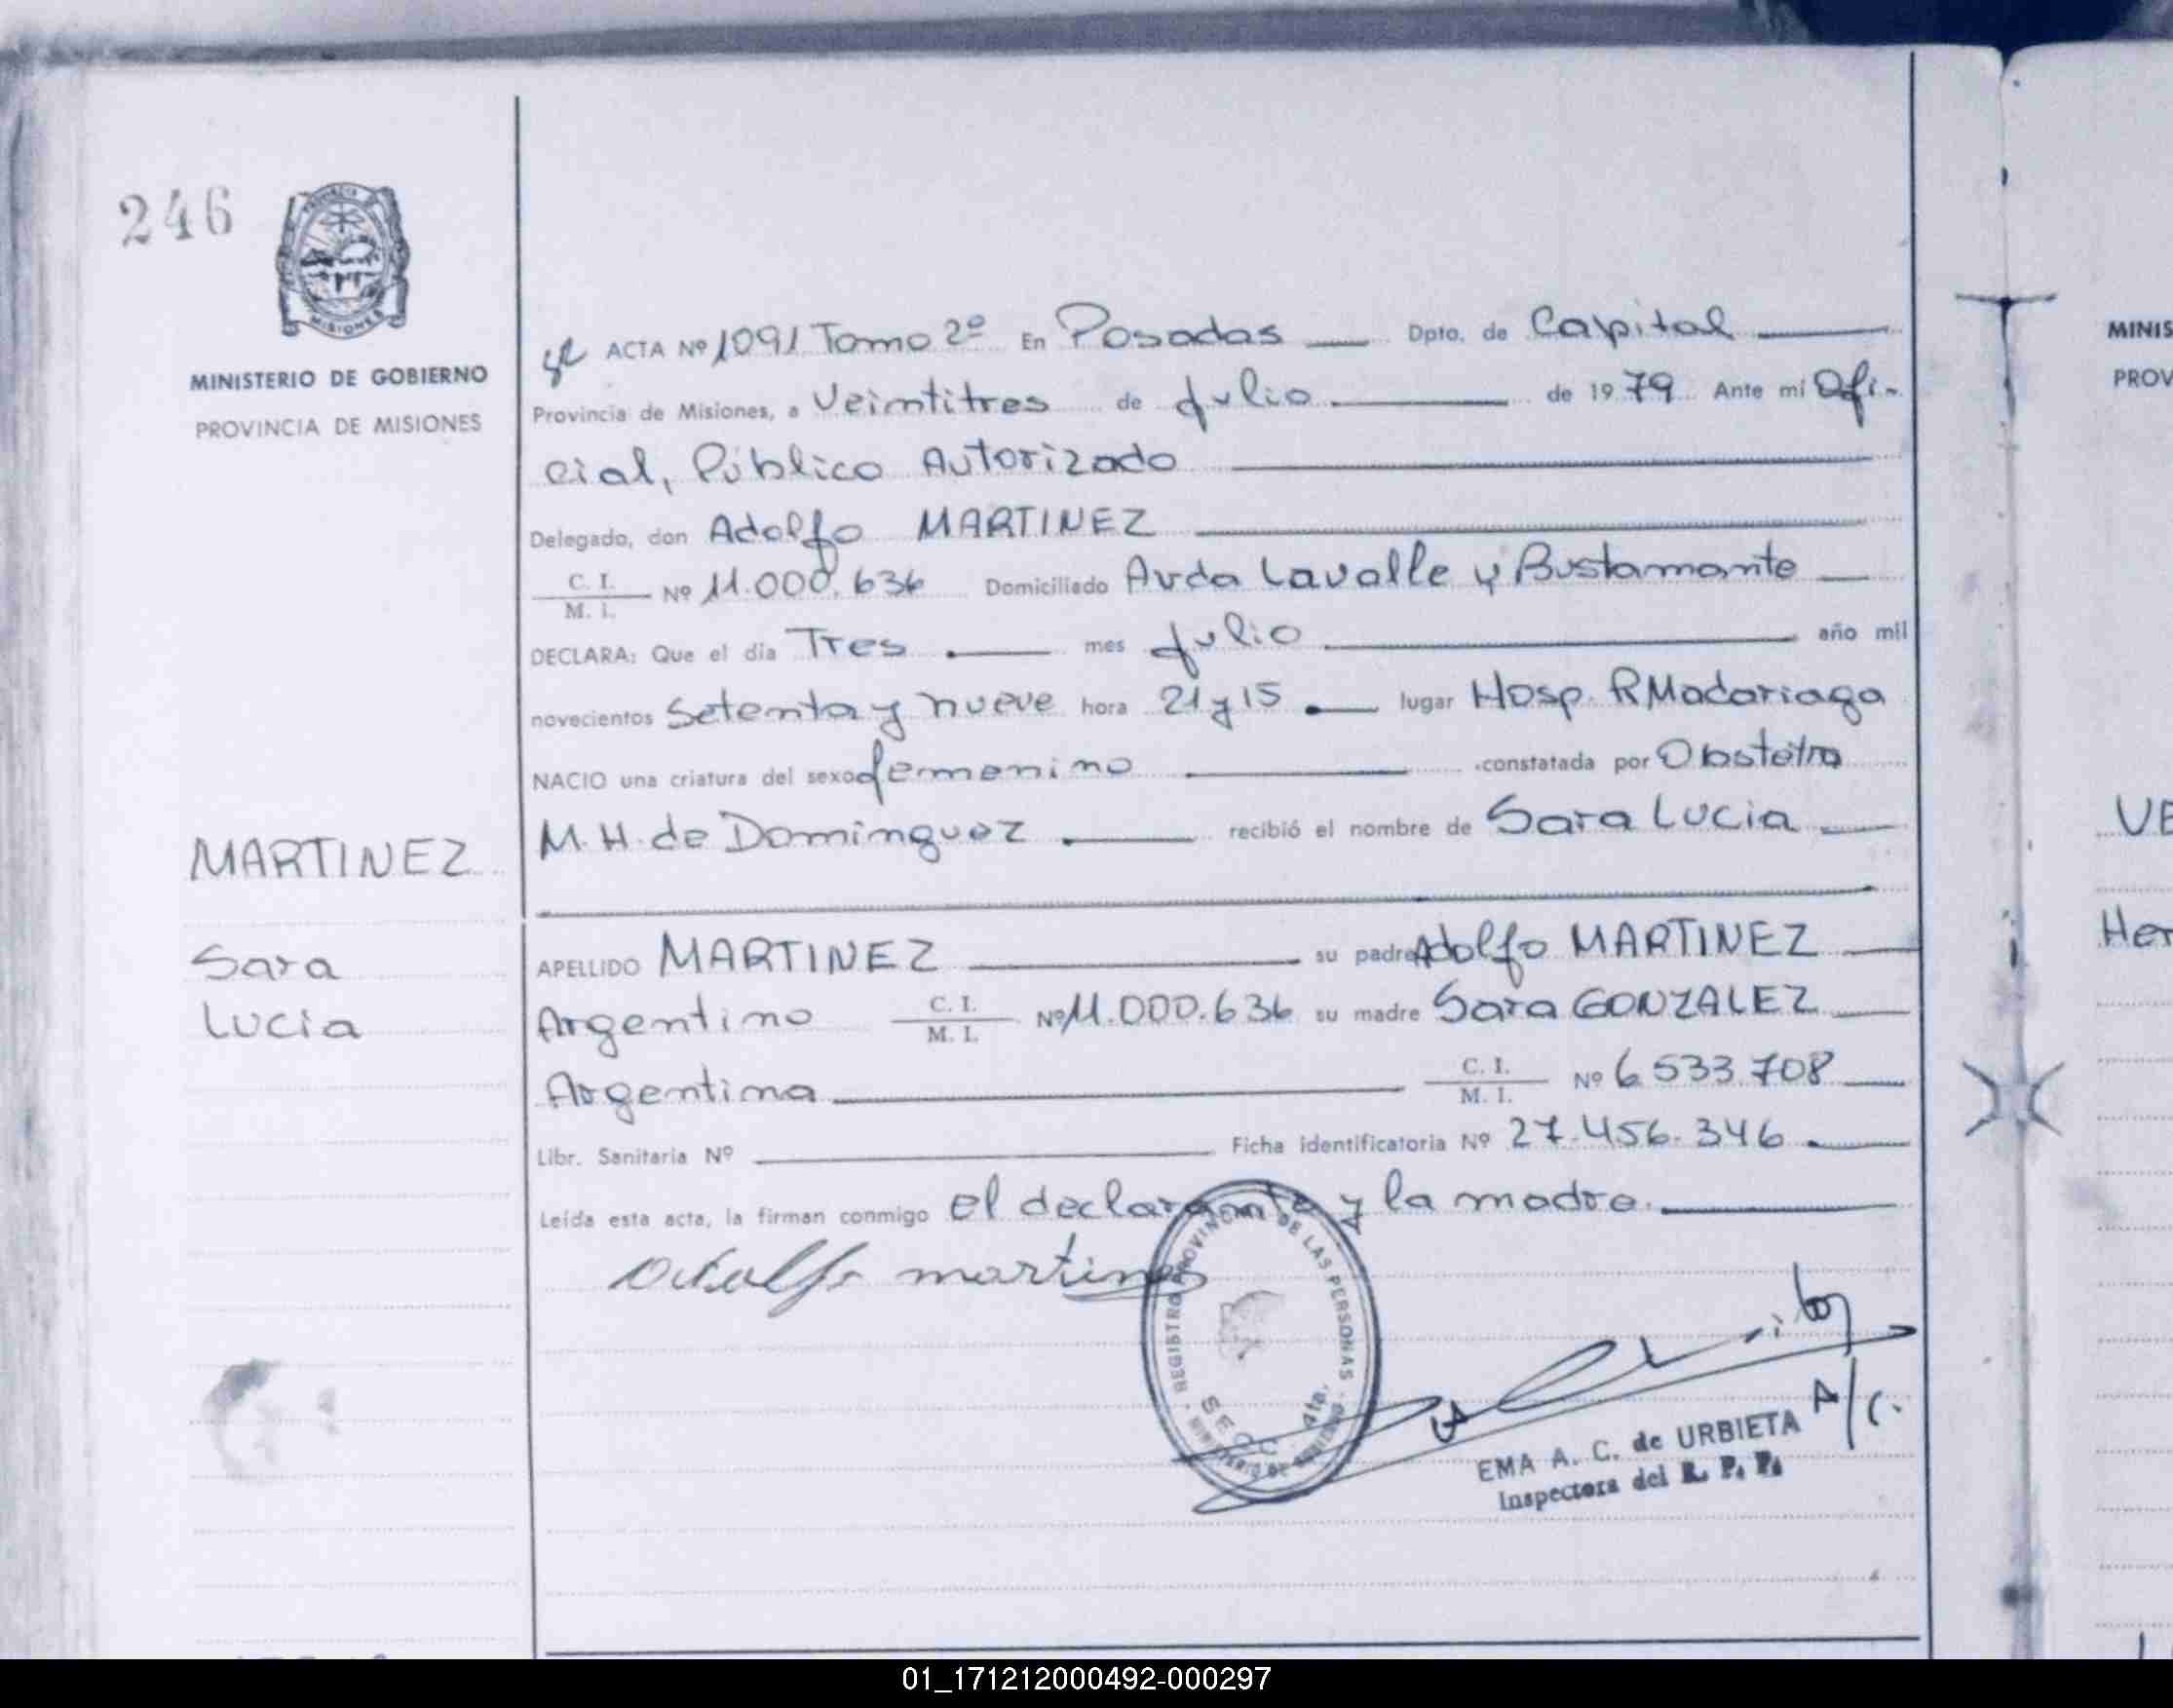 246
MISIONES
MINISTERIO DE GOBIERNO
PROVINCIA DE MISIONES
ACTA Nº 1091 Tomo 2º En Posadas Dpto. de Capital
Provincia de Misiones, a Veintitres de Julio de 1979 Ante mi Ofi-
cial, Público Autorizado
Delegado, don Adolfo MARTINEZ
C. I.
M. I. Nº 11.000.636 Domiciliado Avda Lavalle y Bustamante
DECLARA: Que el día Tres mes Julio año mil
novecientos Setenta y nueve hora 21 y 15 lugar Hosp. R Madariaga
NACIO una criatura del sexo femenino constatada por Obstetra
M. H. de Dominguez recibió el nombre de Sara Lucia
MARTINEZ
Sara
Lucia
APELLIDO MARTINEZ su padre Adolfo MARTINEZ
Argentino C. I.
M. I. Nº 11.000.636 su madre Sara GONZALEZ
Argentina C. I.
M. I. Nº 6.533.708
Libr. Sanitaria Nº Ficha identificatoria Nº 27.456.346
Leída esta acta, la firman conmigo el declarante y la madre.
Adolfo martinez
REGISTRO PROVINCIAL DE LAS PERSONAS
SECC. 4ta.
MINISTERIO DE GOBIERNO
A/C.
EMA A. C. de URBIETA
Inspectora del R. P. P.
MINIS
PROV
VE
Her
01_171212000492-000297